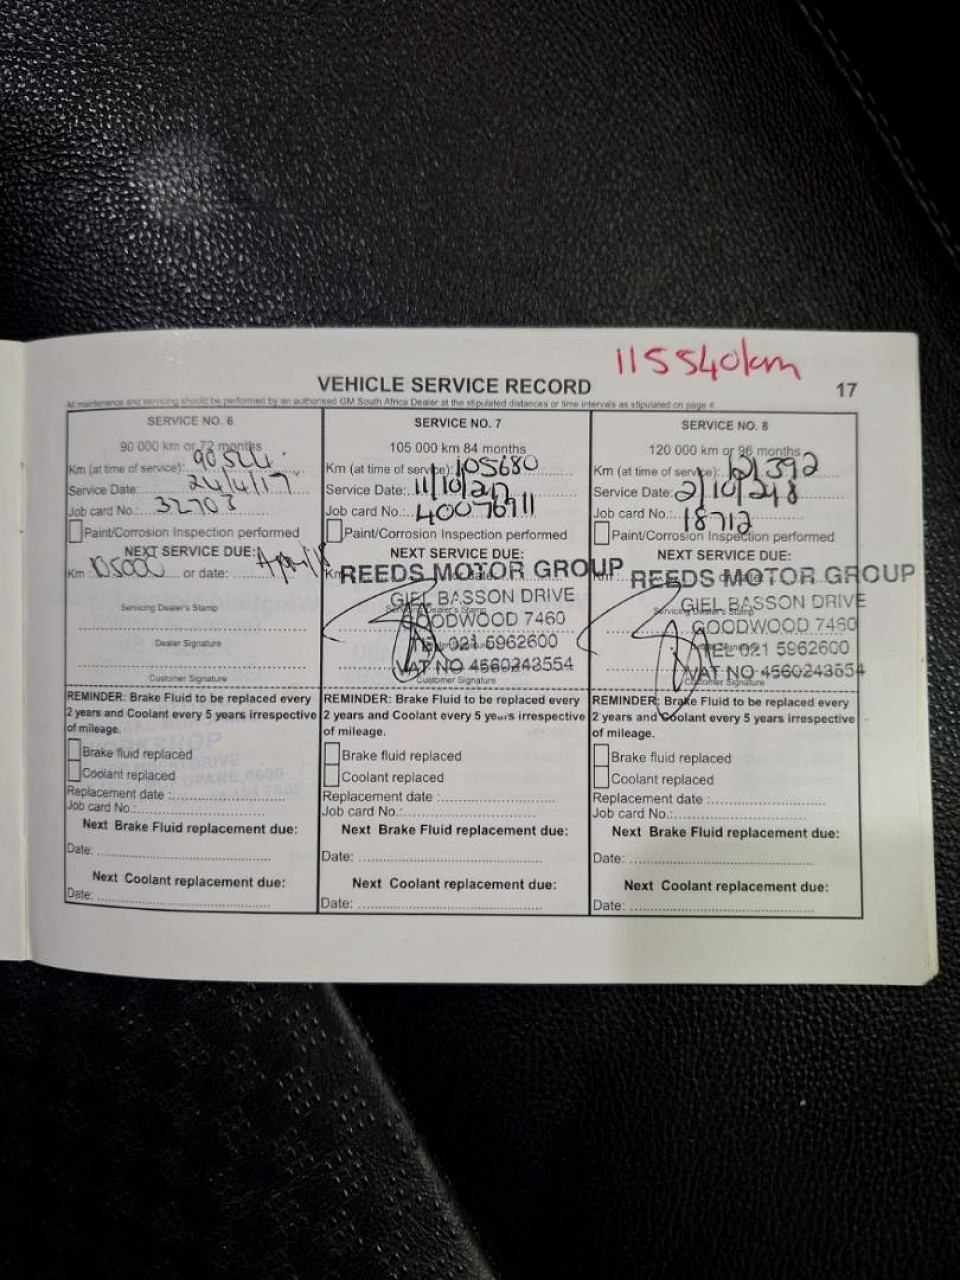 115540km
VEHICLE SERVICE RECORD
17
All maintenance and servicing should be performed by an authorised GM South Africa Dealer at the stipulated distances or time intervals as stipulated on page 4.
SERVICE NO. 6
90 000 km or 72 months
Km (at time of service):
Service Date: 24/4/17
Job card No.: 32703
Paint/Corrosion Inspection performed
NEXT SERVICE DUE:
Km 105000 or date: April
Servicing Dealer's Stamp
Dealer Signature
Customer Signature
REMINDER: Brake Fluid to be replaced every
2 years and Coolant every 5 years irrespective
of mileage.
Brake fluid replaced
Coolant replaced
Replacement date :
Job card No.:
Next Brake Fluid replacement due:
Date:
Next Coolant replacement due:
Date:
SERVICE NO. 7
105 000 km 84 months
Km (at time of service): 105680
Service Date: 11/10/
Job card No.: 40076911
Paint/Corrosion Inspection performed
NEXT SERVICE DUE:
REEDS MOTOR GROUP
GIEL BASSON DRIVE
GOODWOOD 7460
TEL 021 5962600
VAT NO 4560243554
Customer Signature
REMINDER: Brake Fluid to be replaced every
2 years and Coolant every 5 years irrespective
of mileage.
Brake fluid replaced
Coolant replaced
Replacement date :
Job card No.:
Next Brake Fluid replacement due:
Date:
Next Coolant replacement due:
Date:
SERVICE NO. 8
120 000 km or 96 months
Km (at time of service): 121392
Service Date: 2/10/
Job card No.: 18712
Paint/Corrosion Inspection performed
NEXT SERVICE DUE:
REEDS MOTOR GROUP
GIEL BASSON DRIVE
GOODWOOD 7460
TEL 021 5962600
VAT NO 4560243554
Customer Signature
REMINDER: Brake Fluid to be replaced every
2 years and Coolant every 5 years irrespective
of mileage.
Brake fluid replaced
Coolant replaced
Replacement date :
Job card No.:
Next Brake Fluid replacement due:
Date:
Next Coolant replacement due:
Date: